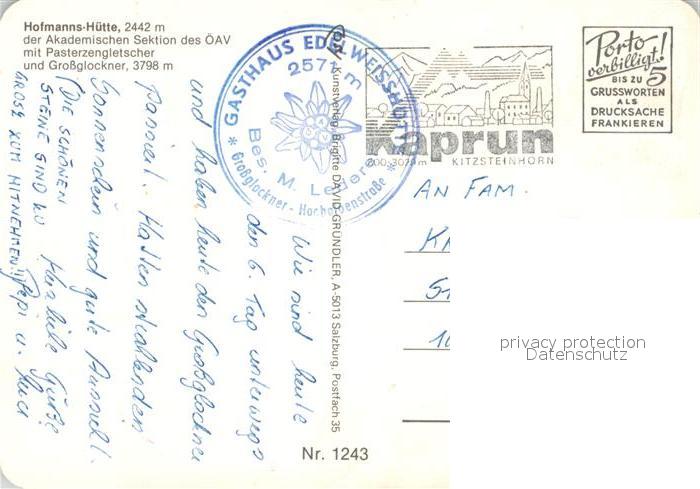 Hofmanns-Hütte, 2442 m
der Akademischen Sektion des ÖAV
mit Pasterzengletscher
und Großglockner, 3798 m
GASTHAUS EDELWEISSHÜTTE
2571 m
Bes. M. Lederer
* Großglockner - Hochalpenstraße *
Kaprun
800-3029 m KITZSTEINHORN
Porto
verbilligt!
BIS ZU 5
GRUSSWORTEN
ALS
DRUCKSACHE
FRANKIEREN
Kunstverlag Brigitte DAVID-GRÜNDLER, A-5013 Salzburg, Postfach 35
Wir sind heute
den 6. Tag unterwegs
und haben heute den Großglockner
passiert. Hatten strahlenden
Sonnenschein und gute Aussicht.
Herzliche Grüße
Pepi u.
(DIE SCHÖNEN
STEINE SIND ZU
GROSS ZUM MITNEHMEN!!)
AN FAM.
Nr. 1243
privacy protection
Datenschutz